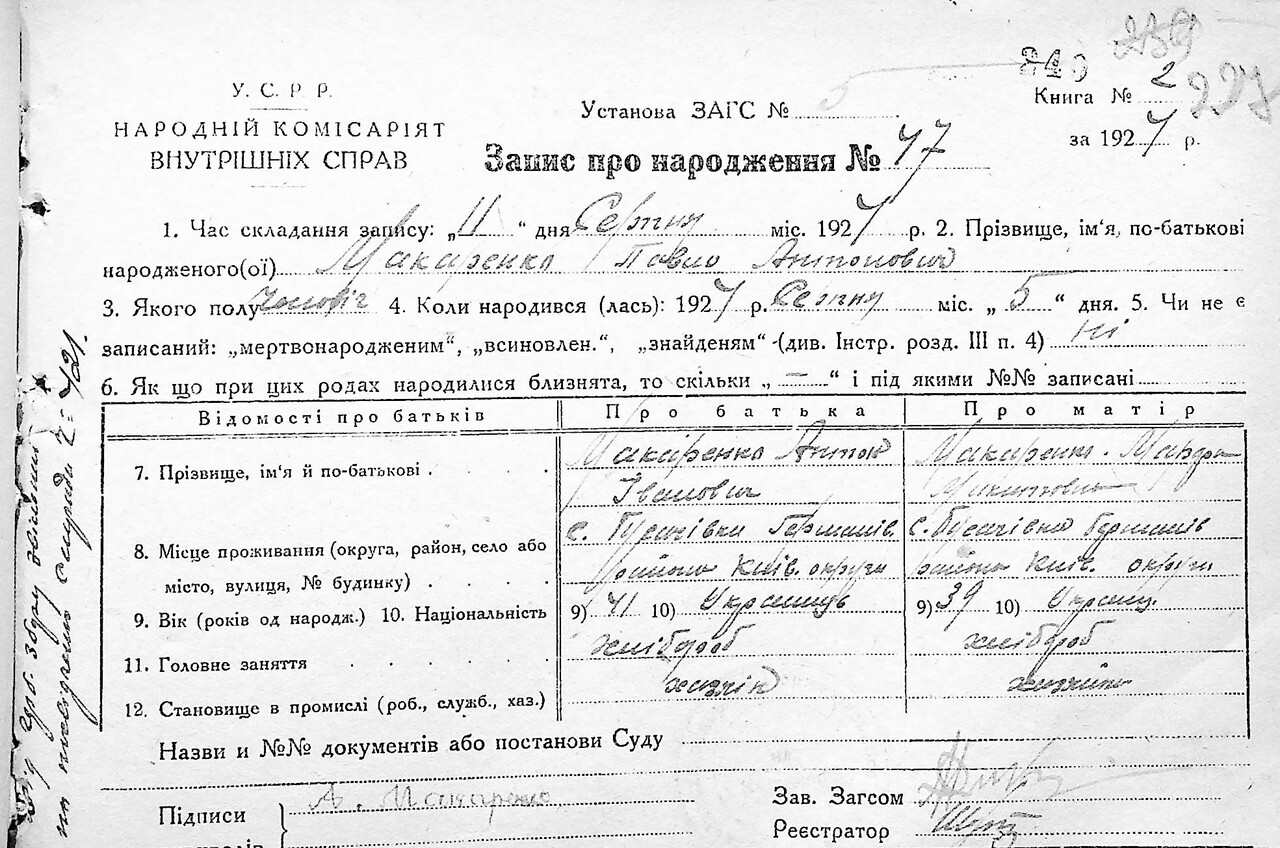 239
240
У. С. Р. Р.
НАРОДНІЙ КОМІСАРІЯТ
ВНУТРІШНІХ СПРАВ
Установа ЗАГС № 5
Книга № 2
227
за 1927 р.
Запис про народження № 47
1. Час складання запису: „11“ дня Серпня міс. 1927 р. 2. Прізвище, ім'я, по-батькові
народженого(ої) Макаренко Павло Антонович
3. Якого полу чоловіч 4. Коли народився (лась): 1927 р. Серпня міс. „5“ дня. 5. Чи не є
записаний: „мертвонародженим“, „всиновлен.“, „знайденям“ -(див. Інстр. розд. III п. 4) ні
6. Як що при цих родах народилися близнята, то скільки „—“ і під якими №№ записані
Відомості про батьків Про батька Про матір
7. Прізвище, ім'я й по-батькові . Макаренко Антон Івановичь Макаренко Мандра
8. Місце проживання (округа, район, село або
місто, вулиця, № будинку) с. Гусачівка Германів. району Київ. округи с. Гусачівка Германів району Київ. округи
9. Вік (років од народж.) 10. Національність 9) 41 10) Украинць 9) 39 10) Украин.
11. Головне заняття хлібороб хлібороб
12. Становище в промислі (роб., служб., хаз.) хазяїн
Назви и №№ документів або постанови Суду
Підписи А. Макаренко
Зав. Загсом
Реєстратор